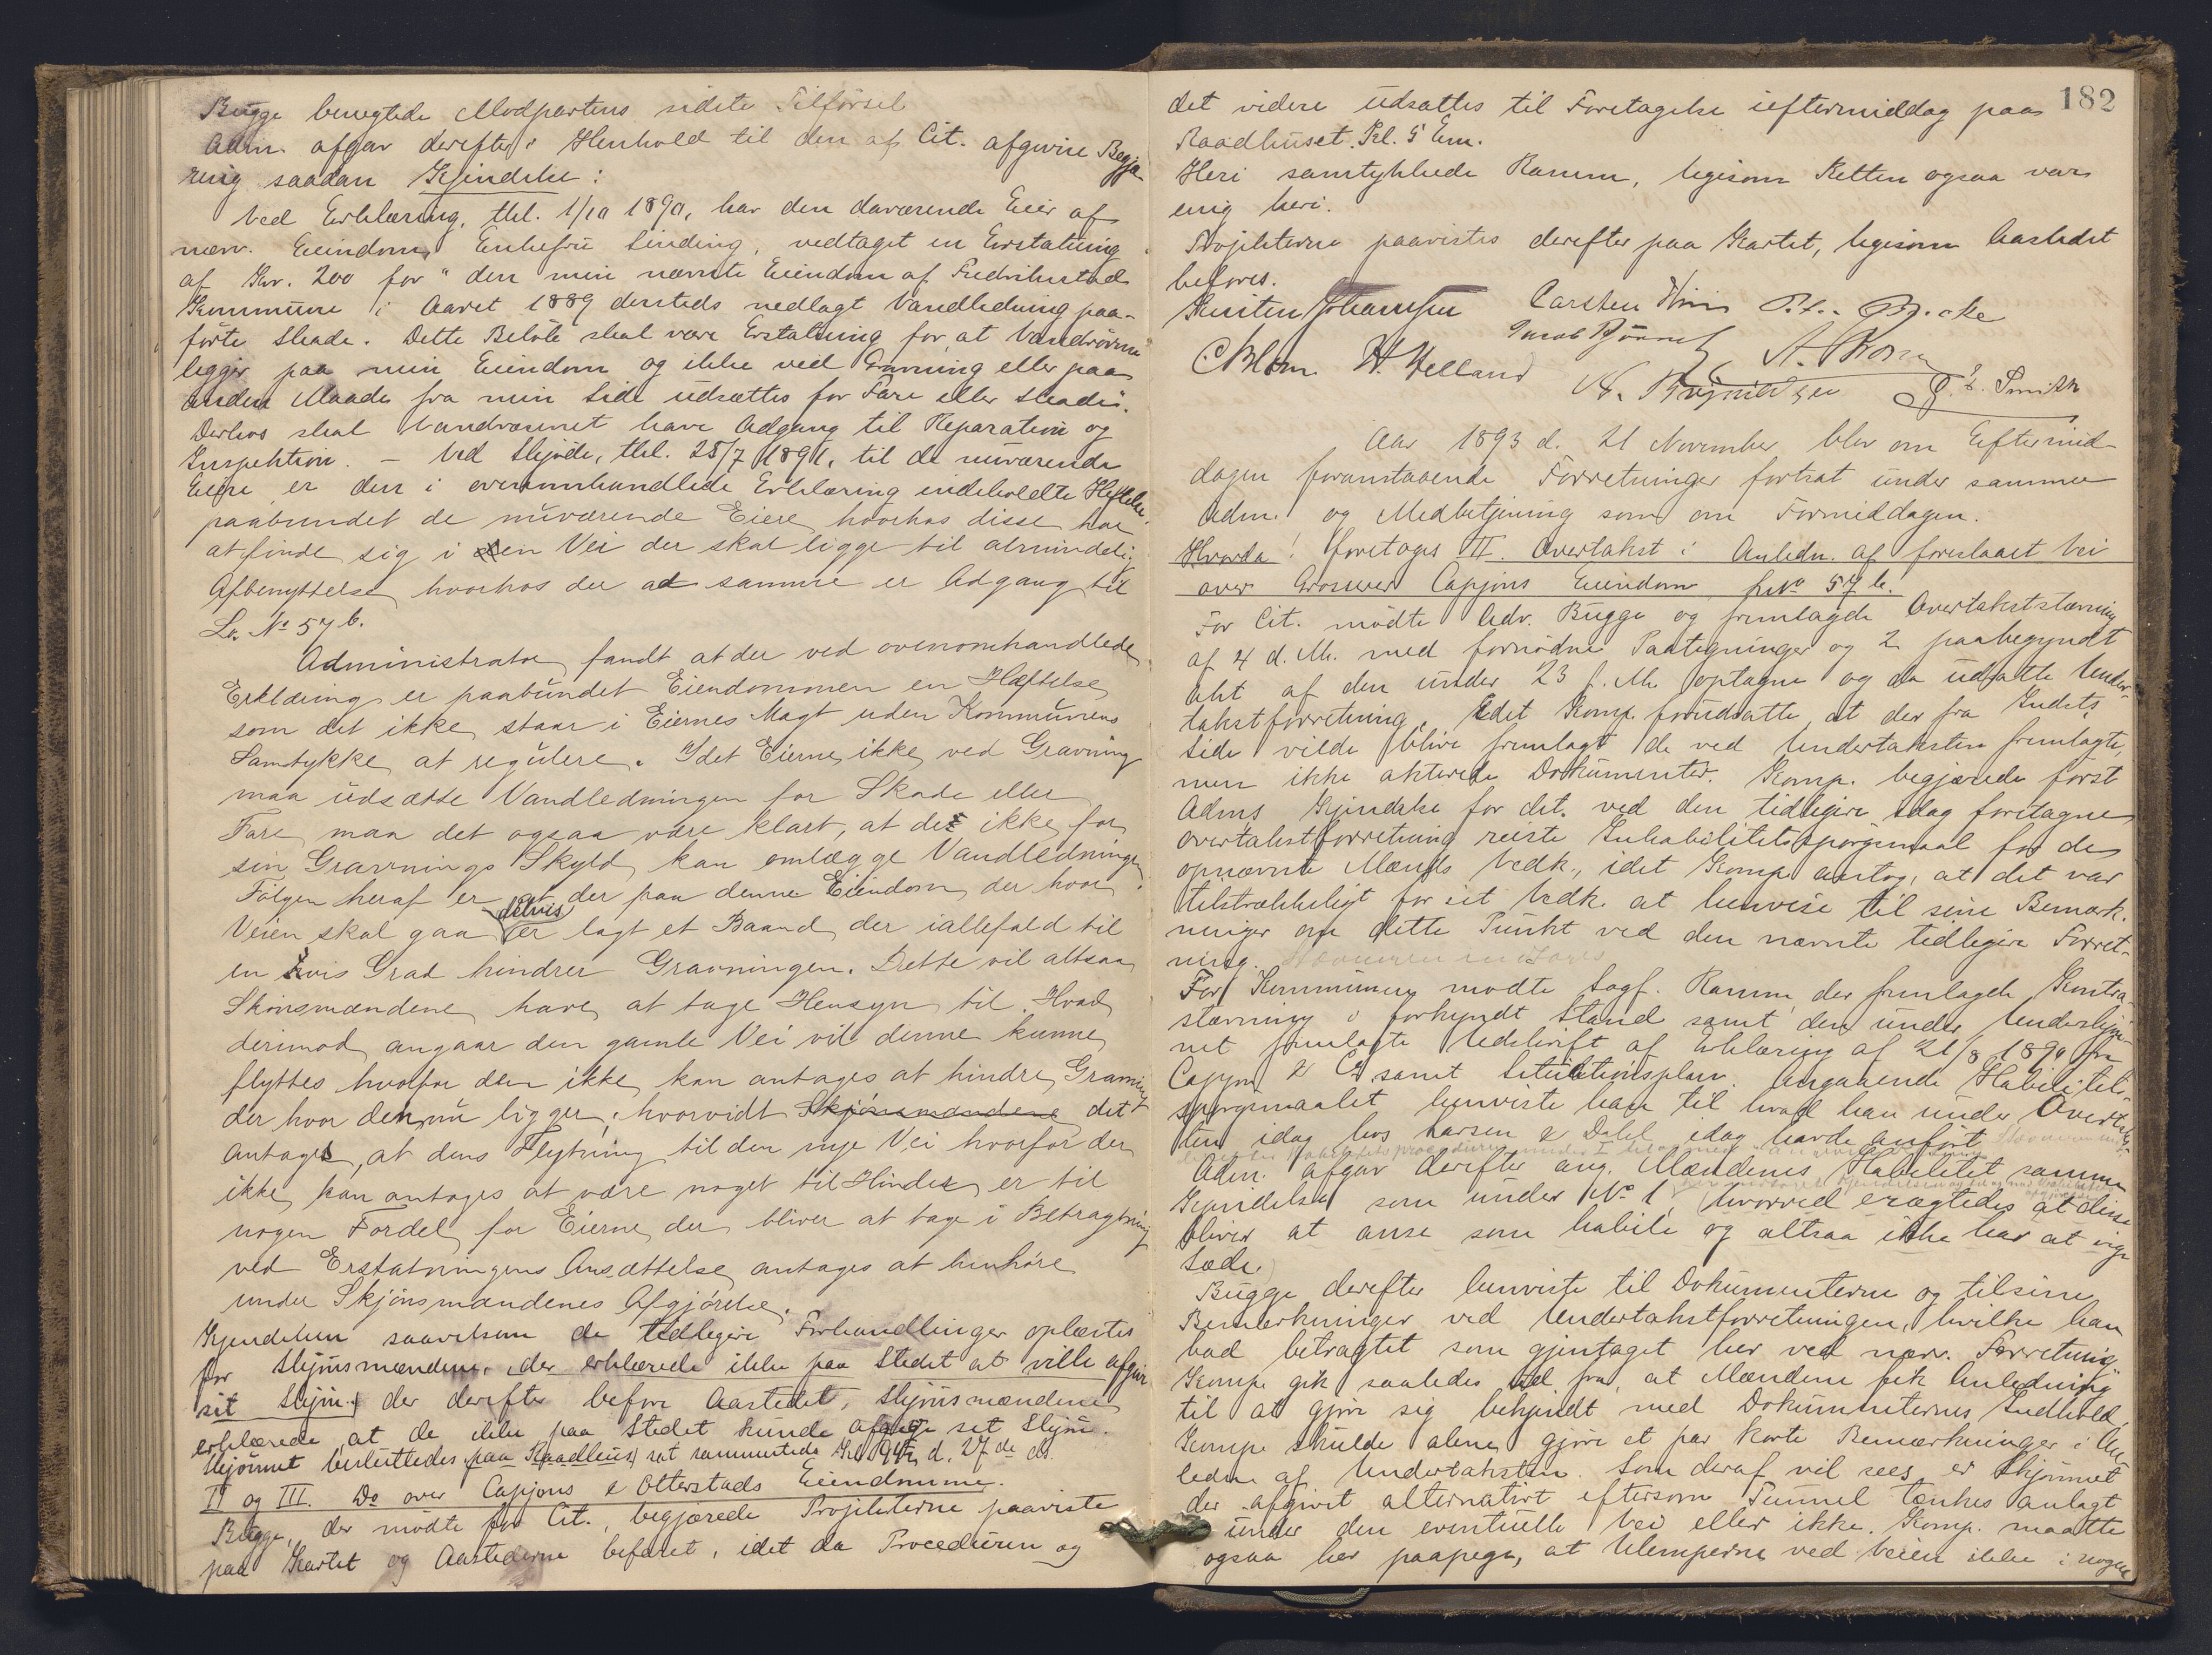 Bugge benegtede Modpartens sidste Tilførsel
Adm. afgav derefter i Henhold til den af Cit. afgivne Begjæ-
ring saadan Kjendelse:
Ved Erklæring, thl. 1/10 1890, har den daværende Eier af
nærv. Eiendom, Enkefru Sinding, vedtaget en Erstatning
af Kr. 200 for "den min nævnte Eiendom af Fredrikstad
Kommune i Aaret 1889 dersteds nedlagt Vandledning paa-
førte Skade. Dette Beløb skal være Erstatning for, at Vandrørene
ligger paa min Eiendom og ikke ved Gravning eller paa
anden Maade fra min Side udsættes for Fare eller Skade".
Derhos skal Vandvæsenet have Adgang til Reparation og
Inspektion. – Ved Skjøde, thl. 25/7 1891, til de nuværende
Eiere er den i ovenomhandlede Erklæring indeholdte Heftelse
paabundet de nuværende Eiere, hvorhos disse har
at finde sig i en Vei der skal ligge til almindelig
Afbenyttelse hvorhos der ad samme er Adgang til
Lv. No 57 b.
Administrator fandt at der ved ovenomhandlede
Erklæring er paabundet Eiendommen en Hæftelse
som det ikke staar i Eiernes Magt uden Kommunens
Samtykke at regulere. Idet Eierne ikke ved Gravning
maa udsætte Vandledningen for Skade eller
Fare, maa det ogsaa være klart, at de ikke for
sin Gravnings Skyld kan omlægge Vandledningen.
Følgen heraf er at der paa denne Eiendom der hvor
Veien skal gaa delvis er lagt et Baand, der iallefald til
en vis Grad hindrer Gravningen. Dette vil altsaa
Skönsmændene have at tage Hensyn til. Hvad
derimod angaar den gamle Vei vil denne kunne
flyttes hvorfor den ikke kan antages at hindre Gravning
der hvor den nu ligger; hvorvidt Skjönsmændene det
antages, at dens Flytning til den nye Vei hvorfor der
ikke kan antages at være noget til Hinder, er til
nogen Fordel for Eierne, der bliver at tage i Betragtning
ved Erstatningens Ansættelse antages at henhøre
under Skjönsmændenes Afgjörelse.
Kjendelsen saavelsom de tidligere Forhandlinger oplæstes
for Skjönsmændene, der erklærede ikke paa Stedet at ville afgive
sit Skjön. der derefter before Aastedet. Skjönsmændene
erklærede, at de ikke paa Stedet kunde afgive sit Skjön.
Skjönnet besluttedes paa Raadhus sat sammesteds Kl. d. 27de ds.
II og III. Do over Capjons & Otterstads Eiendomme.
Bugge, der mødte for Cit., begjærede Projekterne paaviste
paa Kartet og Aastederne befaret, idet da Proceduren og
182
det videre udsattes til Foretagelse ieftermiddag paa
Raadhuset. Kl. 5 Em.
Heri samtykkede Ramm, ligesom Retten ogsaa var
enig heri.
Projekterne paavistes derefter paa Kartet, ligesom Aastedet
befores.
Kristen Johansen Carsten
C Blom H. Helland
Smith
Aar 1893 d. 21 November blev om Eftermid-
dagen foranstaaende Forretninger fortsat under samme
Adm. og Medbetjening som om Formiddagen.
Hvorda! foretoges II. Overtakst i Anledn. af foreslaaet Vei
over Grosserer Capjons Eiendom No 57 b.
For Cit. mødte Adv. Bugge og fremlagde Overtakststævning
af 4 d. M. med fornødne Paategninger og 2 paabegyndt
Akt af den under 23 f. M. optagne og da udsatte Under-
takstforretning. Idet Komp. forudsatte, at der fra Indcts
Side vilde blive fremlagt de ved Undertaksten fremlagte,
men ikke akterede Dokumenter. Komp. begjærede først
Adms Kjendelse for det. ved den tidligere idag foretagne
overtakstforretning reiste Inhabilitetsspørgsmaal for de
opnævnte Mænds Vedk., idet Komp. antog, at det var
tilstrækkeligt for sit Vedk. at henvise til sine Bemærk-
ninger om dette Punkt ved den nævnte tidligere Forret-
ning.
For Kommunen mødte Sagf. Ramm, der fremlagde Kontra-
stævning i forkyndt Stand samt den under Underskjøn-
net fremlagte Udskrift af Erklæring af 21/8 1890 fra
Capjon & Co samt Situationsplan. Angaaende Habilitets-
spørgsmaalet henviste han til hvad han under Overtak-
sten idag hos Larsen & Dahl idag havde anført.
Adm. afgav derefter ang. Mændenes Habilitet samme
Kjendelse som under No 1, hvorved eragtedes at disse
bliver at anse som habile og altsaa ikke har at vige
Sæde.
Bugge derefter henviste til Dokumenterne og til sine
Bemærkninger ved Undertakstforretningen, hvilke han
bad betragtet som gjentaget her ved nærv. Forretning.
Komp. gik saaledes ud fra, at Mændene fik Anledning
til at gjøre sig bekjendt med Dokumenternes Indhold.
Komp. skulde alene gjøre et par korte Bemærkninger i An-
ledn. af Undertaksten. Som deraf vil sees er Skjønnet
der afgivet alternativt eftersom Tunnel tænkes anlagt
under den eventuelle Vei eller ikke. Komp. maatte
ogsaa her paapege, at Ulemperne ved Veien ikke i nogen